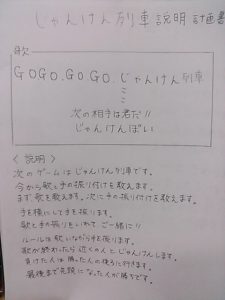 じゃんけん列車説明計画書
歌
GOGO.GOGO.じゃんけん列車
次の相手は君だ!!
じゃんけんぽい
〈説明〉
次のゲームはじゃんけん列車です。
今から歌と手の振り付けを教えます。
まず歌を教えます。次に手の振り付けを教えます。
手を横にしてまを振ります。
歌と手の振りをいれてご一緒に!!
ルールは歌いながら手を振ります。
歌が終わったら近くの人とじゃんけんします。
負けた人は勝った人の後ろに行きます。
最後まで先頭になった人が勝ちです。